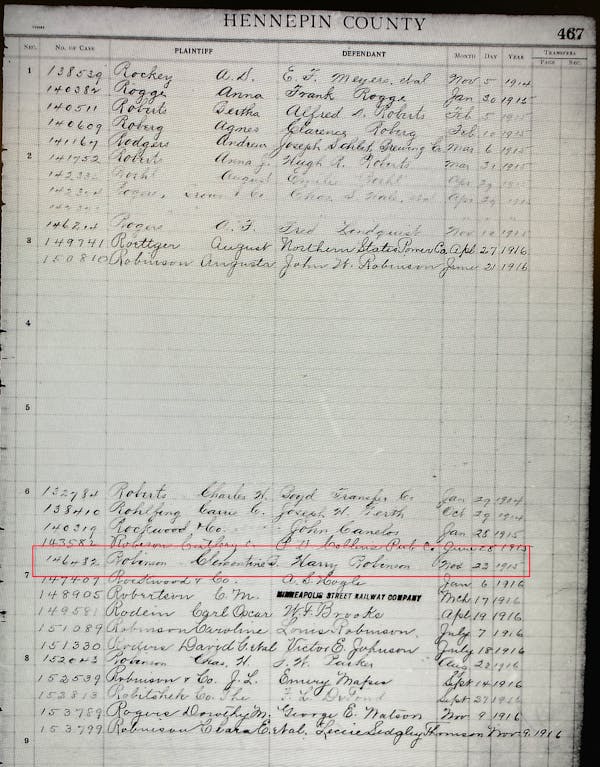 HENNEPIN COUNTY
467
SEC. No. OF CASE PLAINTIFF DEFENDANT MONTH DAY YEAR TRANSFERS
PAGE SEC.
1 138539 Rockey A. D. E. F. Meyers, et al Nov 5 1914
140382 Rogge Anna Frank Rogge Jan 30 1915
140511 Roberts Bertha Alfred D. Roberts Feb 5 1915
140609 Roberg Agnes Clarence Roberg Feb 10 1915
141167 Rodgers Andrew Joseph Schlitz Brewing Co Mar 6 1915
2 141752 Roberts Anna J. Hugh R. Roberts Mar 31 1915
August Emilie Apr 29 1915
Chas. S. Hale, et al Apr 29 1915
146214 Rogers A. F. Fred Lindquist Nov 1915
3 149741 Rörttger August Northern States Power Co. Apl 27 1916
150810 Robinson Augusta John W. Robinson June 21 1916
4
5
6 132784 Roberts Charles H. Boyd Transfer Co Jan 29 1914
138410 Rohlfing Carrie C. Joseph H. Oct 29 1914
140319 Rockwood & Co. John Canelos Jan 28 1915
143582 Robison P. F. Collier Pub. Co. June 28 1915
146482 Robinson Clementine T. Harry Robinson Nov 22 1915
7 147409 Rockwood & Co. A. S. Hogle Jan 6 1916
148905 Robertson C. M. MINNEAPOLIS STREET RAILWAY COMPANY Mch 17 1916
149581 Rodein Carl Oscar W. J. Brooks Apl 19 1916
151089 Robinson Caroline Louis Robinson July 7 1916
151330 Roders David C. et al Victor E. Johnson July 18 1916
8 152043 Robinson Chas. H. Parker Aug 22 1916
152539 Robinson & Co. J. L. Emery Mapes Sept 14 1916
152813 Robitshek Co. The F. L. Sept 27 1916
153789 Rogers Dorothy M. George E. Watson Nov 9 1916
153799 Robinson Clara E. et al. Thomson Nov. 9. 1916
9